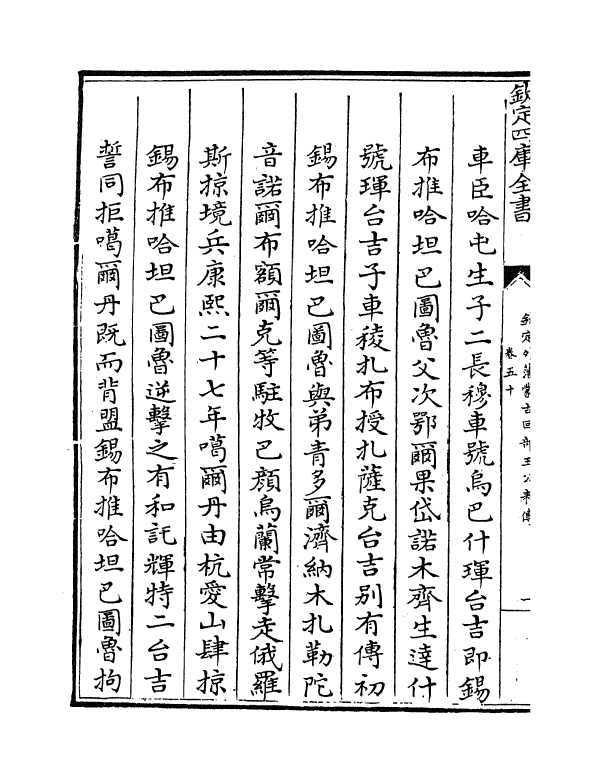 欽定四庫全書
欽定外藩蒙古回部王公表傳
卷五十
一
車臣哈屯生子二長穆車號烏巴什琿台吉即錫
布推哈坦巴圖魯父次鄂爾果岱諾木齊生達什
號琿台吉子車稜扎布授扎薩克台吉别有傳初
錫布推哈坦巴圖魯與弟青多爾濟納木扎勒陀
音諾爾布額爾克等駐牧巴顔烏蘭常擊走俄羅
斯掠境兵康熙二十七年噶爾丹由杭愛山肆掠
錫布推哈坦巴圖魯逆擊之有和託輝特二台吉
誓同拒噶爾丹既而背盟錫布推哈坦巴圖魯拘